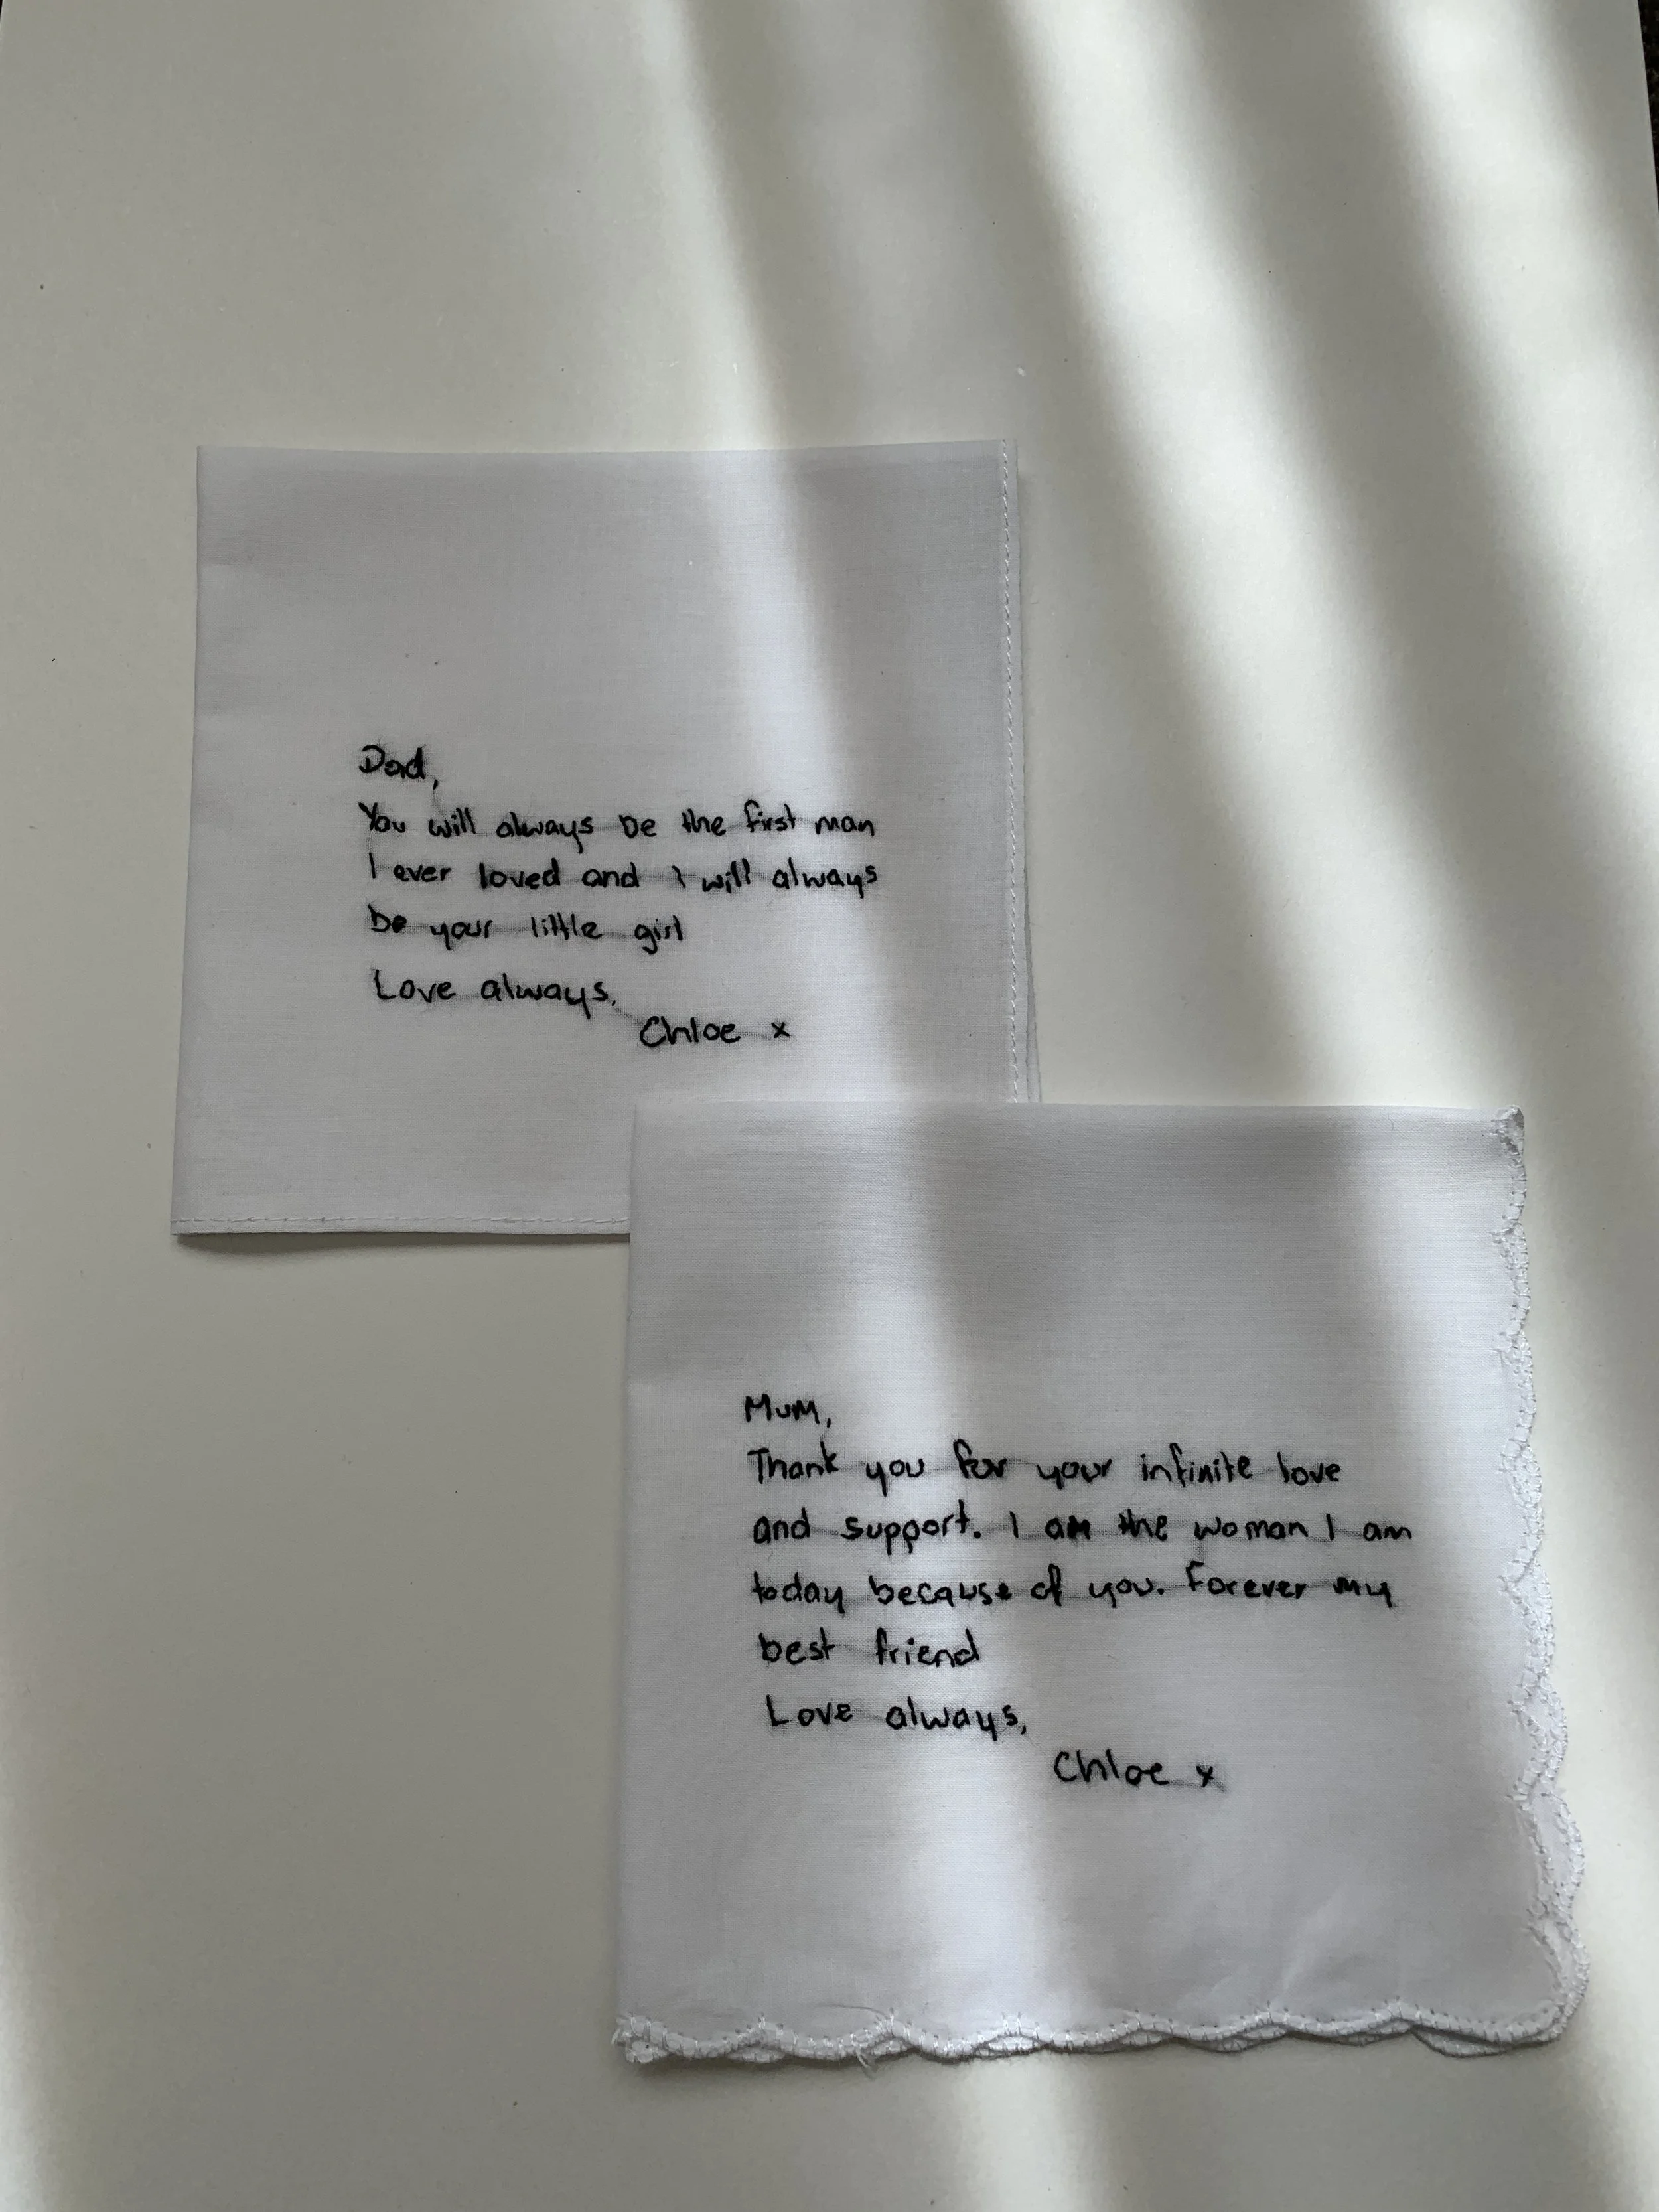 Dad,
You will always be the first man
I ever loved and I will always
be your little girl
Love always,
Chloe x
Mum,
Thank you for your infinite love
and support. I am the woman I am
today because of you. Forever my
best friend
Love always,
Chloe x